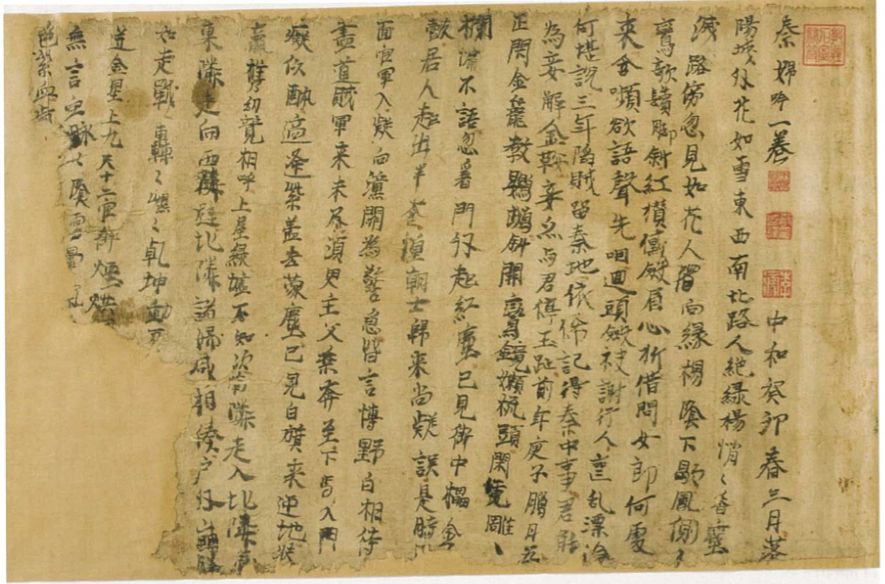 秦婦吟一卷 中和癸卯春三月落
陽城外花如雪東西南北路人絶緑楊悄〻香塵
滅路傍忽見如花人獨向緑楊陰下歇鳳側〻
鸞欹鬢脚斜紅攢黛斂眉心折借問女郎何處
来含嚬欲語聲先咽迴頭斂袂謝行人喪乱漂淪
何堪説三年陥賊留秦地依俙記得秦中事君能
為妾解金鞍妾亦与君停玉趾前年庚子臈月五
正閇金籠教鸚鵡斜開鸞鏡懶梳頭閑凭雕〻
欄慵不語忽看門外起紅塵已見街中擂金
鼓居人走出半倉惶朝士歸来尚疑誤是時
面官軍入擬向潼關為警急皆言博野自相持
盡道賊軍来未及須臾主父乗奔至下馬入門
癡似酔適逢紫盖去蒙塵已見白旗来迊地扶
羸携幼競相呼上屋緣墻不知次南隣走入北隣
東隣走向西隣避北隣諸婦咸相湊户外崩騰
如走獸轟〻〻乾坤動
迸金星上九天十二官街烟烘
無言空脉〻陰雲暈
色紫